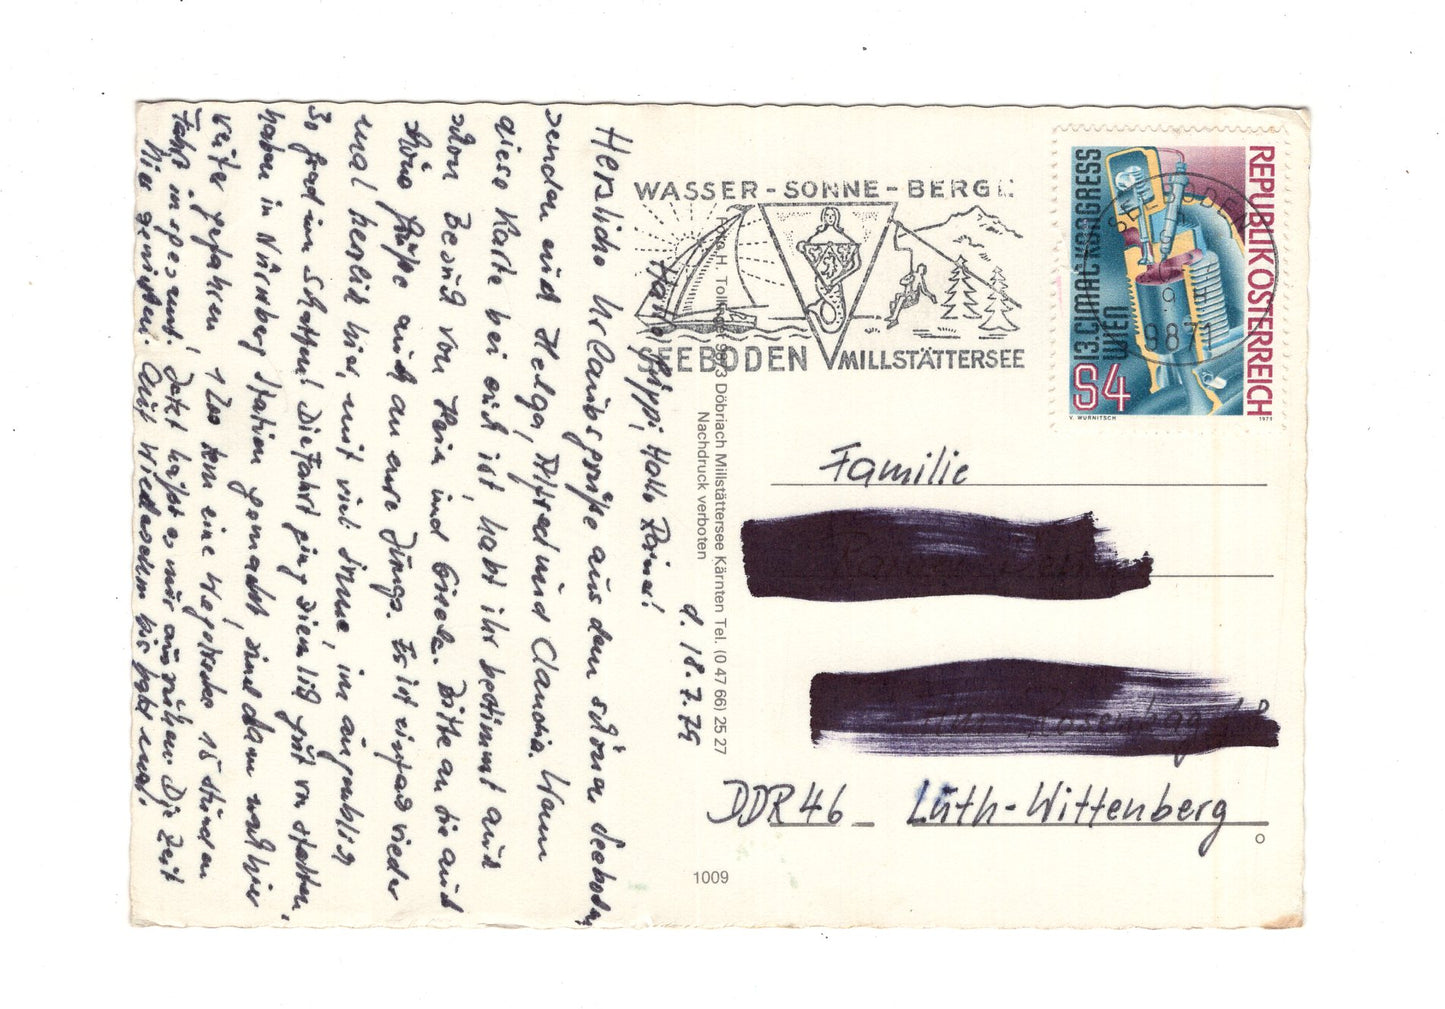 d. 18.7.79
Hallo Hippi, Hallo Heinei!
Herzliche Urlaubsgrüße aus dem schönen Seeboden
senden euch Helga, Alfred und Claudia. Wenn
diese Karte bei euch ist, habt ihr bestimmt auch
schon Besuch von Hein und Gisela. Bitte an die auch
schöne Grüße auch an eure Jungs. Es ist einfach wieder
mal herrlich hier, mit viel Sonne, im angeblich
30 grad im Schatten! Die Fahrt ging ziemlich gut von statten,
haben in Nürnberg station gemacht, und dann nach hier
weiter gefahren 1200 km eine Wegstrecke 15 stunden
Fahrt insgesamt! Jetzt heißt es nur ausruhen. Die Zeit
hier genießen. Auf Wiedersehn bis bald mal.
WASSER - SONNE - BERGE
SEEBODEN MILLSTÄTTERSEE
REPUBLIK ÖSTERREICH
13. CIMAC KONGRESS
WIEN
S4
V. WURNITSCH 1979
SEEBODEN
9871
Foto H. Tollinger 9873 Döbriach Millstättersee Kärnten Tel. (0 47 66) 25 27
Nachdruck verboten
Familie
DDR 46 Luth-Wittenberg
1009